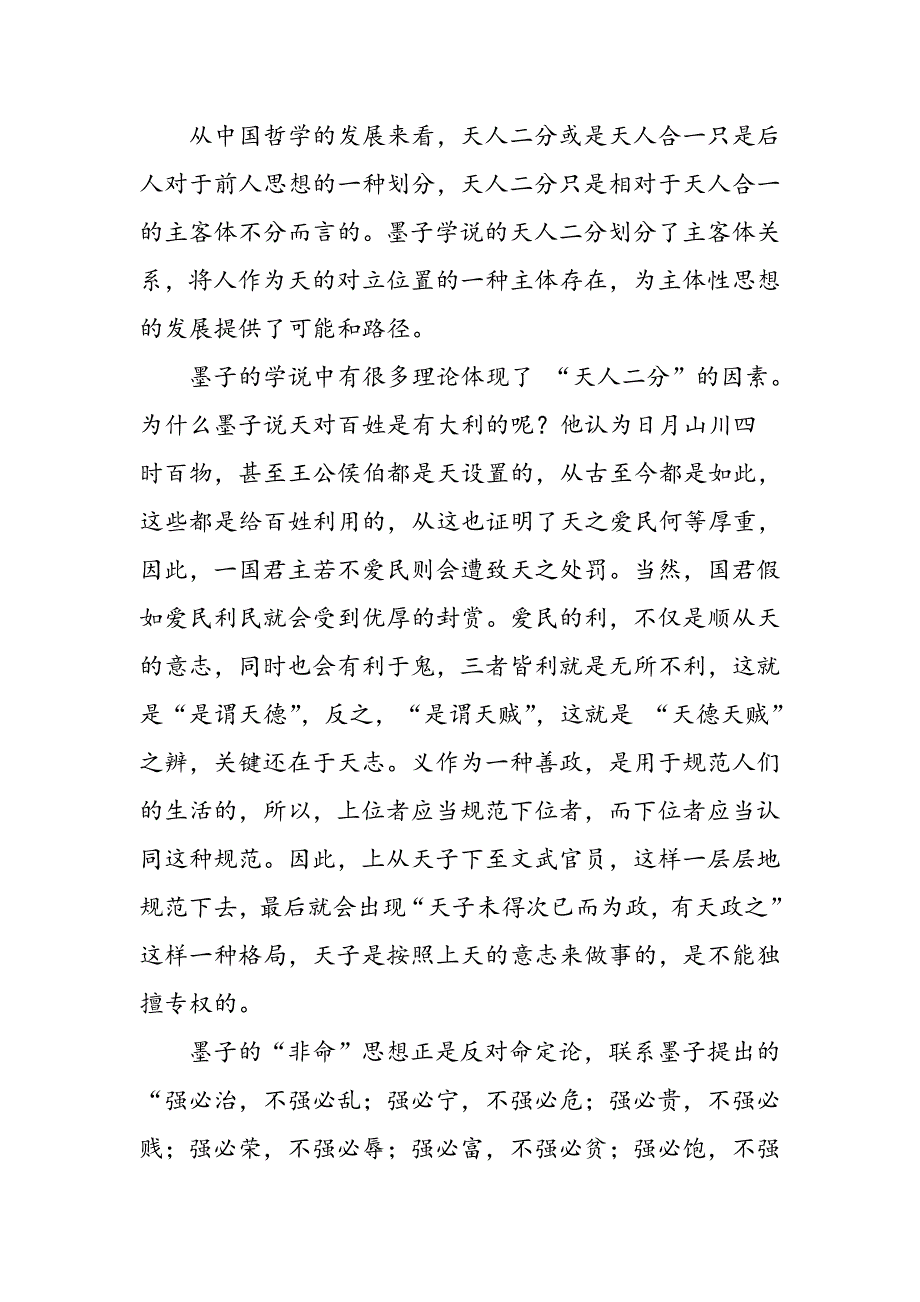 从中国哲学的发展来看，天人二分或是天人合一只是后
人对于前人思想的一种划分，天人二分只是相对于天人合一
的主客体不分而言的。墨子学说的天人二分划分了主客体关
系，将人作为天的对立位置的一种主体存在，为主体性思想
的发展提供了可能和路径。
墨子的学说中有很多理论体现了 “天人二分”的因素。
为什么墨子说天对百姓是有大利的呢？他认为日月山川四
时百物，甚至王公侯伯都是天设置的，从古至今都是如此，
这些都是给百姓利用的，从这也证明了天之爱民何等厚重，
因此，一国君主若不爱民则会遭致天之处罚。当然，国君假
如爱民利民就会受到优厚的封赏。爱民的利，不仅是顺从天
的意志，同时也会有利于鬼，三者皆利就是无所不利，这就
是“是谓天德”，反之，“是谓天贼”，这就是 “天德天贼”
之辨，关键还在于天志。义作为一种善政，是用于规范人们
的生活的，所以，上位者应当规范下位者，而下位者应当认
同这种规范。因此，上从天子下至文武官员，这样一层层地
规范下去，最后就会出现“天子未得次已而为政，有天政之”
这样一种格局，天子是按照上天的意志来做事的，是不能独
擅专权的。
墨子的“非命”思想正是反对命定论，联系墨子提出的
“强必治，不强必乱；强必宁，不强必危；强必贵，不强必
贱；强必荣，不强必辱；强必富，不强必贫；强必饱，不强